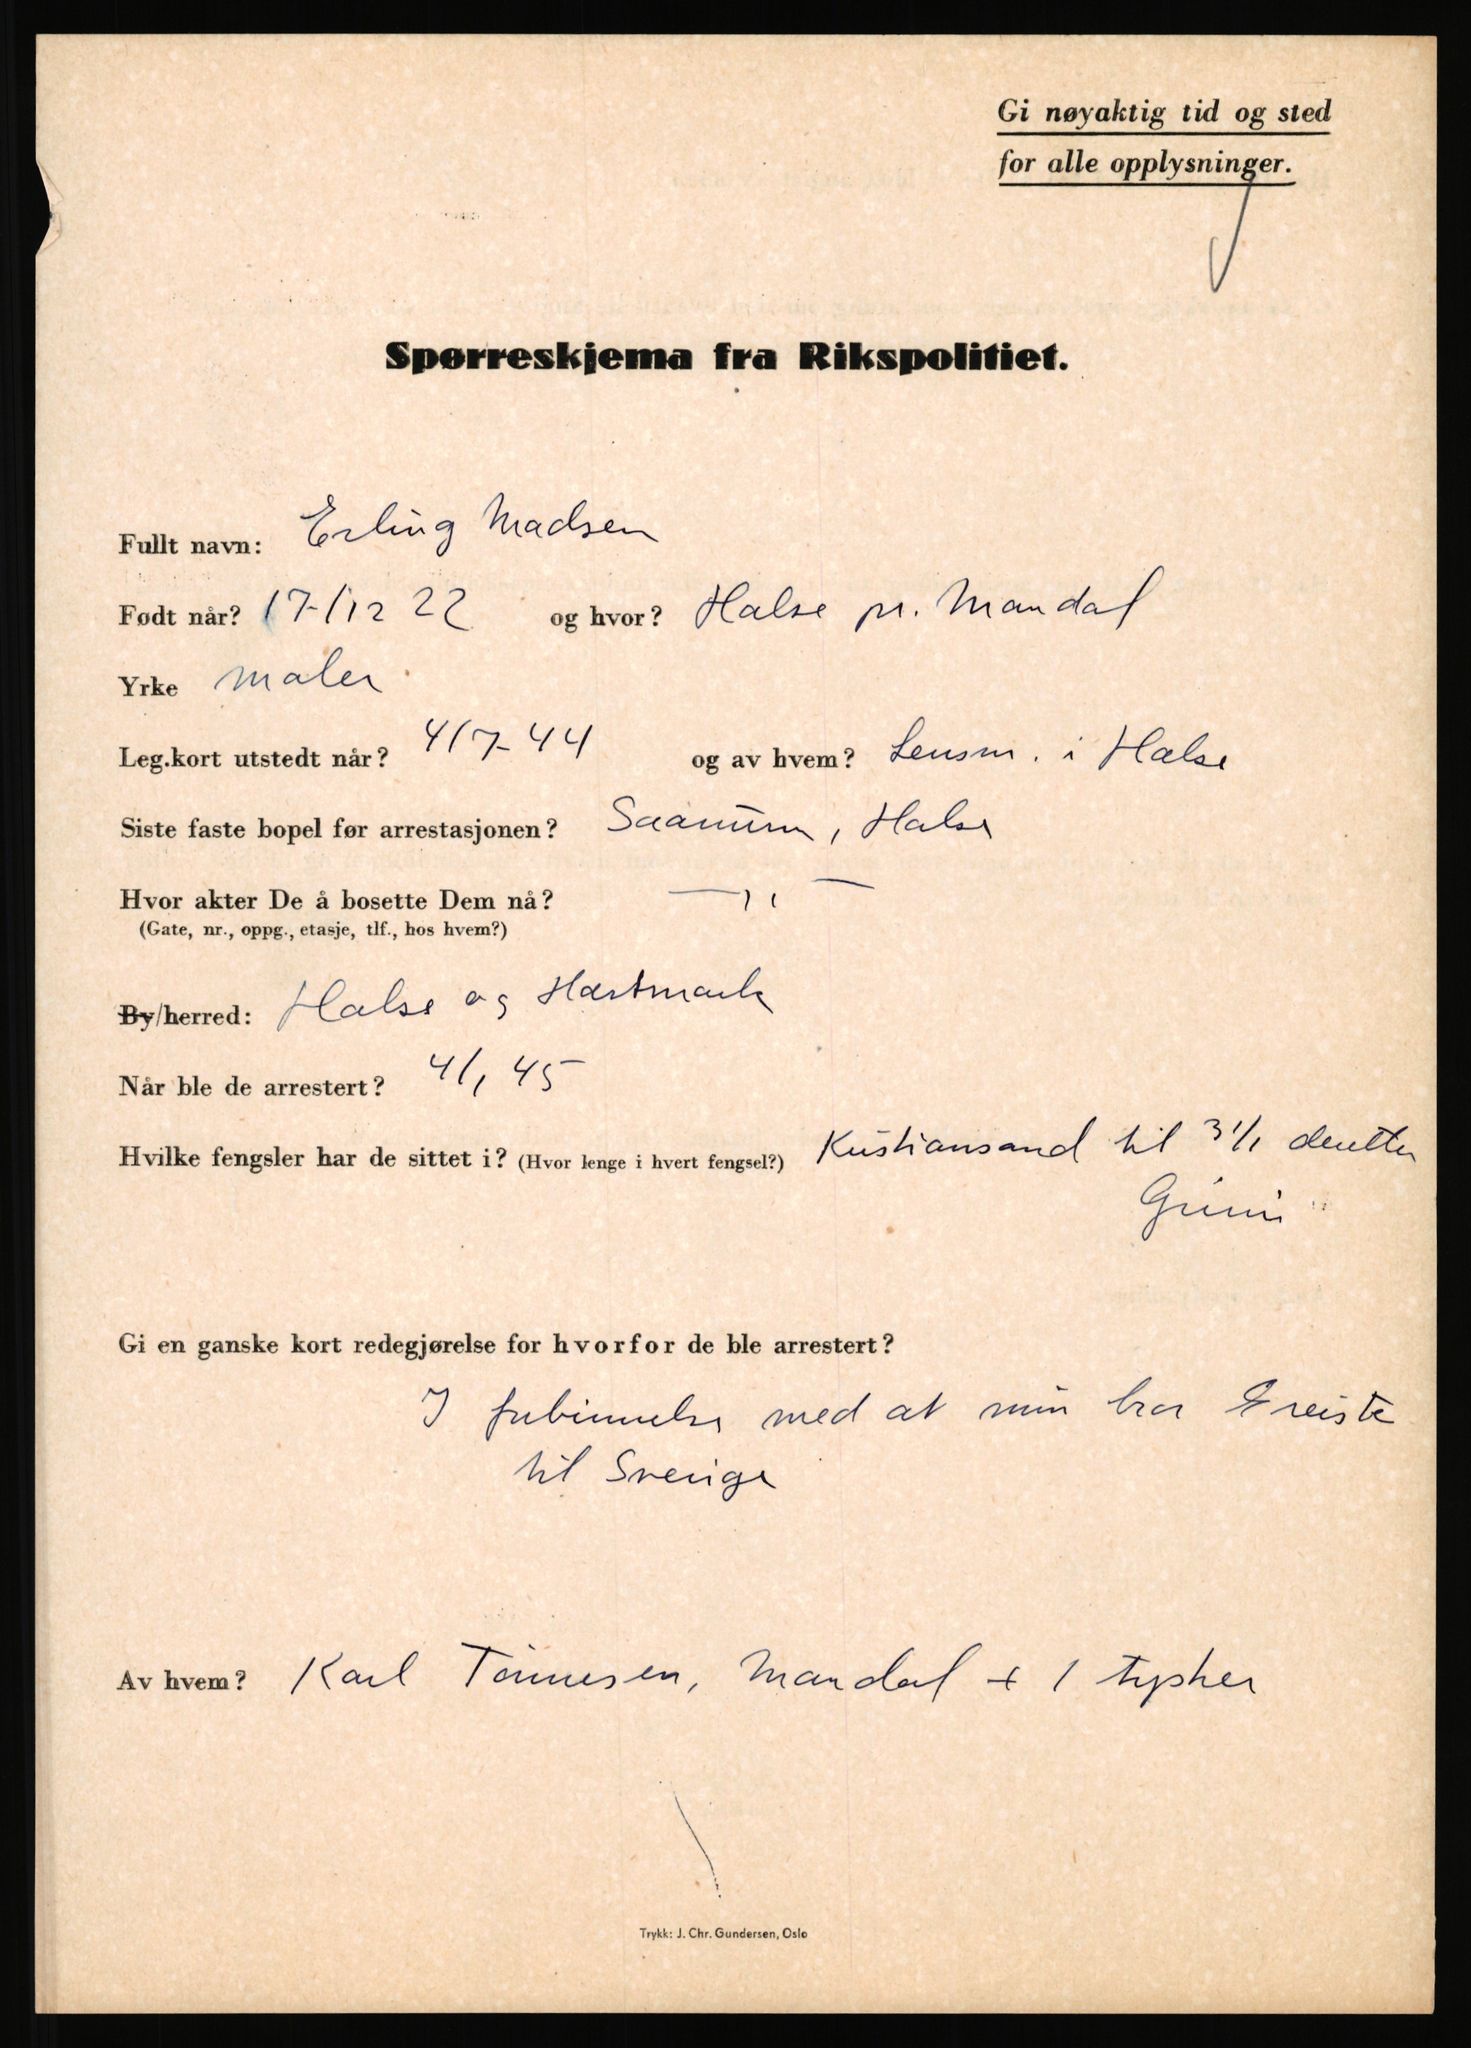 Gi nøyaktig tid og sted
for alle opplysninger.
Spørreskjema fra Rikspolitiet.
Fullt navn: Erling Madsen
Født når? 17/12 22 og hvor? Halse pr. Mandal
Yrke Maler
Leg.kort utstedt når? 4/7-44 og av hvem? Lensm. i Halse
Siste faste bopel før arrestasjonen? Saanum, Halse
Hvor akter De å bosette Dem nå? — ,, —
(Gate, nr., oppg., etasje, tlf., hos hvem?)
By/herred: Halse og Hartmark
Når ble de arrestert? 4/1 45
Hvilke fengsler har de sittet i? (Hvor lenge i hvert fengsel?) Kristiansand til 31/1 deretter
Grini
Gi en ganske kort redegjørelse for hvorfor de ble arrestert?
I forbinnelse med at min bror reiste
til Sverige
Av hvem? Karl Tönnesen, Mandal + 1 tysker
Trykk: J. Chr. Gundersen, Oslo